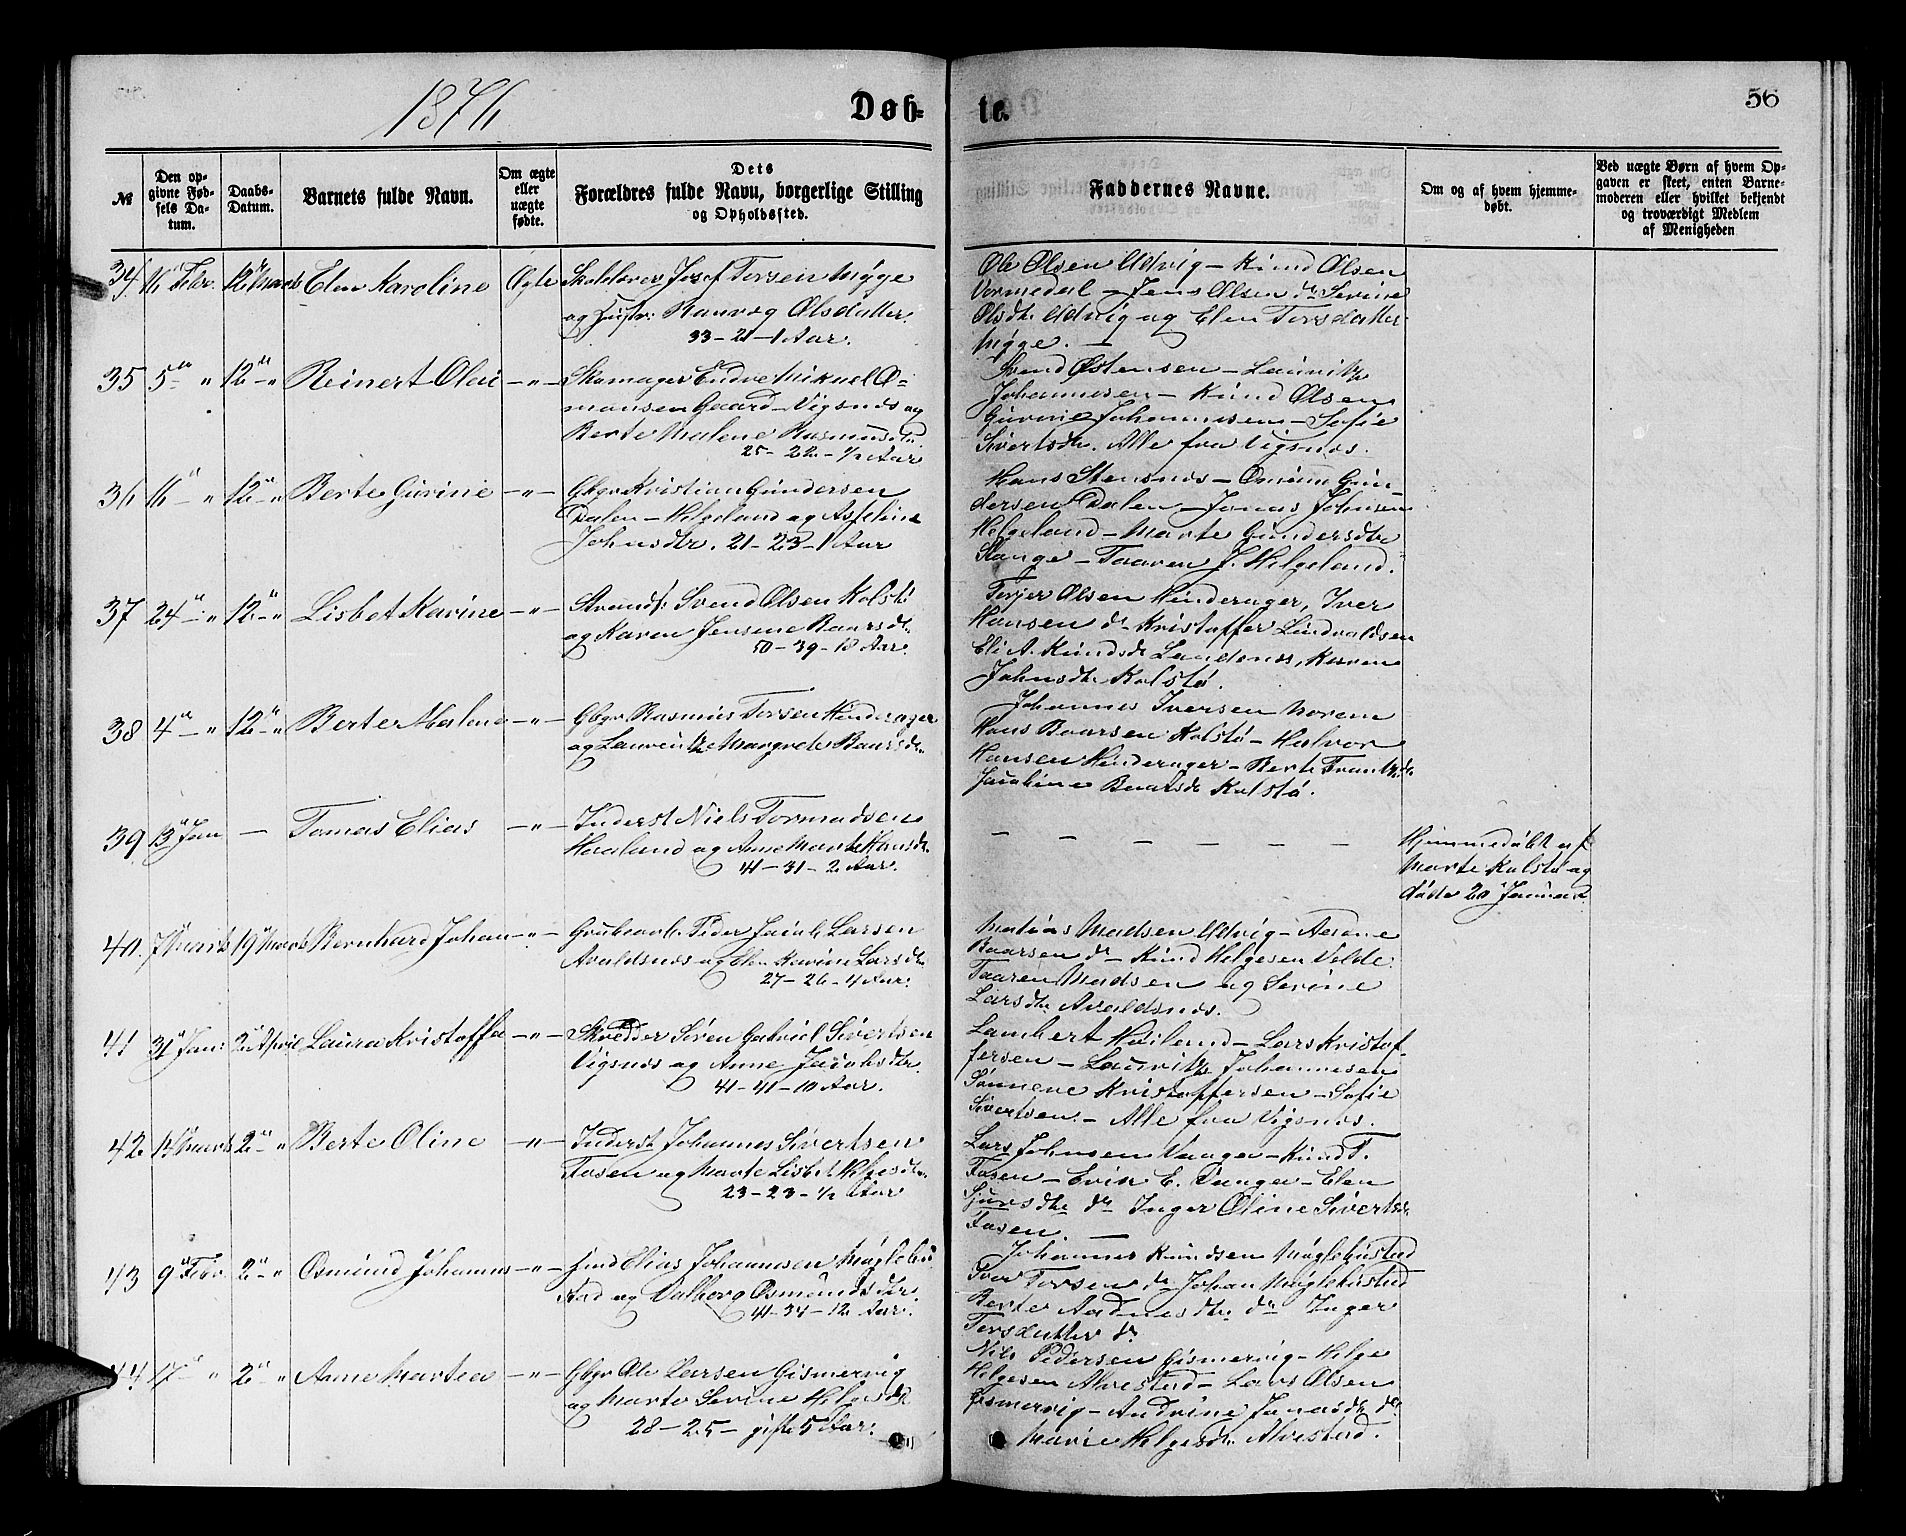 1876
Døb-
te.
56
№
Den op-
givne Fød-
sels Da-
tum.
Daabs-
Datum.
Barnets fulde Navn.
Om ægte
eller
uægte
fødte.
Dets
Forældres fulde Navn, borgerlige Stilling
og Opholdssted.
Faddernes Navne.
Om og af hvem hjemme-
døbt.
Ved uægte Børn af hvem Op-
gaven er skeet, enten Barne-
moderen eller hvilket bekjendt
og troværdigt Medlem
af Menigheden
34 16 Febr. 12 Marts Elen Karoline Ægte Skolelærer Josef Torsen Mygge
og Hustr: Ranveg Olsdatter.
33-21-1 Aar.
Ole Olsen Udvig - Knud Olsen
Vormedal - Jens Olsen do Serine
Olsdtr Udvig og Elen Torsdatter
Mygge. -
35 5 " 12 " Reinert Olai - " - Skomager Endre Mikael O-
monsen Gaard - Vigsnæs og
Berte Malene Rasmusdtr.
25-22-1/2 Aar
Svend Østensen - Lauritz
Johannesen - Knud Olsen
Gurine Johannesen - Sofie
Sivertsdtr. Alle fra Vigsnæs.
36 16 " 12 " Berte Gurine - " - Gbgr Kristian Gundersen
Dalen - Helgeland og Asseline
Johnsdtr. 21-23-1 Aar
Hans Stensnæs - Osmund Gun-
dersen Dalen - Jonas Johnsen
Helgeland - Marte Gundersdtr
Stange - Taaren J. Helgeland.
37 24 " 12 " Lisbet Karine - " - Strands: Svend Olsen Kolstø
og Karen Jensine Baarsdtr.
50-39-18 Aar.
Terjer Olsen Hinderager, Iver
Hansen do Kristoffer Lindvaldsen
Eli A. Knudsdtr Sandenæs, Karen
Johnsdtr Kolstø.
38 4 " 12 " Berte Malene - " - Gbgr Rasmus Torsen Hinderager
og Laurentze Margrete Baarsdtr.
Johannes Iversen Norem
Hans Baarsen Kolstø - Halvor
Hansen Hinderager - Berte Frantzdtr
Jacobine Baarsdtr Kolstø.
39 13 Jan - Tomas Elias - " - Inderst Niels Tormodsen
Haaland og Anne Marte Hansdtr.
41-31-2 Aar.
- - - - - -
Hjemmedøbt af
Marte Kolstø og
døde 20 Januar.
40. 7 Marts 19 Marts Bernhard Johan - " - Grubearb. Peder Jacob Larsen
Avaldsnæs og Karine Larsdtr.
27-26-4 Aar.
Matias Madsen Udvig - Aerone
Baarsen do - Knud Helgesen Velde.
Taaren Madsen og Serine
Larsdtr Avaldsnæs.
41 31 Jan: 2 April Laura Kristoffa - " - Skredder Sören Gabriel Sivertsen
Vigsnæs og Anne Jacobsdtr.
41-41-10 Aar.
Lambert Hesland - Lars Kristof-
fersen - Lauritz Johannesen
Sønnene Kristoffersen - Sofie
Sivertsen - Alle fra Vigsnæs.
42 Marts 2 " Berte Oline - " - Inderst Johannes Sivertsen
Fosen og Marte Lisbet Helgesdtr.
23-23-1/2 Aar
Lars Johnsen Vaage - Knud T.
Fosen - Erik E. Vaage - Elen
Sjursdtr do Inger Oline Sivertsdtr.
Fosen. -
43 9 Febr. 2 " Osmund Johannes - " - Gmd Elias Johannesen Møglebu-
stad og Valborg Osmundsdtr.
41-34-12 Aar.
Johannes Knudsen Møglebustad
Tore Torsen do Johan Møglebustad
Berte Aadnesdtr. do Inger
Torsdatter do
44. 17 " 2 " Anne Martea - " - Gbgr Ole Larsen Gismervig
og Marte Serine Helgesdtr
28-25- gifte 5 Aar.
Nils Pedersen Gismervig - Helge
Helgesen Alvestad - Lars Olsen
Gismervig - Andrine Jonasdtr do
Marie Helgesdtr. Alvestad.